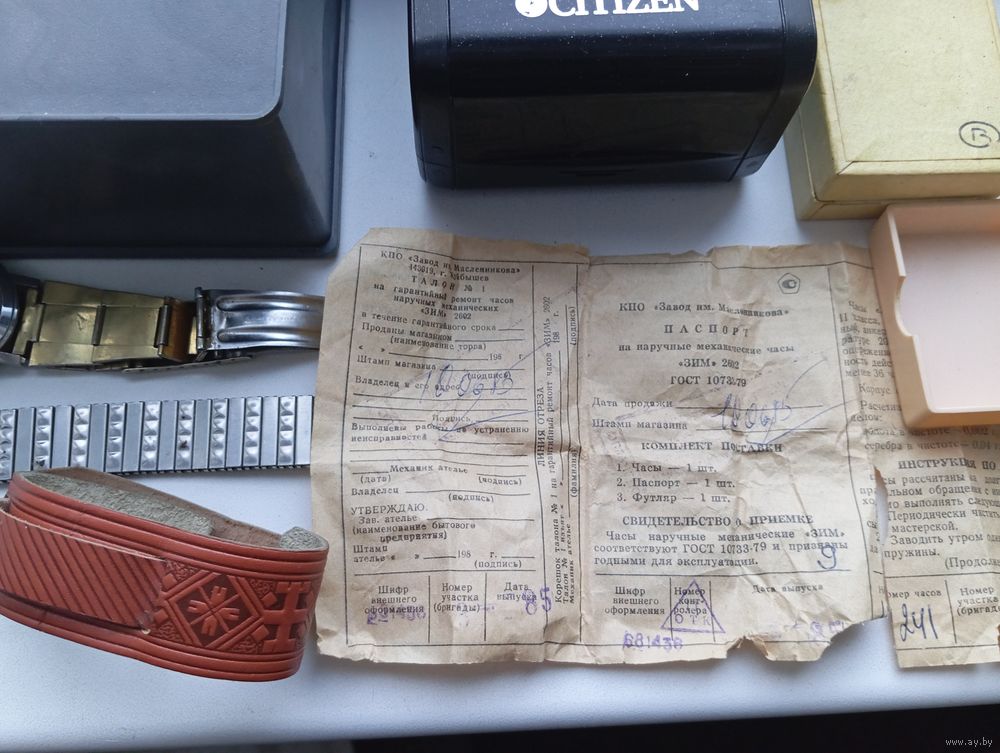 CITIZEN
B
КПО «Завод им. Масленникова»
443619, г. Куйбышев
ТАЛОН № 1
на гарантийный ремонт часов
наручных механических
«ЗИМ» 2602
в течение гарантийного срока
Проданы магазином
(наименование торга)
« » 198 г.
Штамп магазина
(подпись)
Владелец и его адрес
Подпись
Выполнены работы по устранению
неисправностей
Механик ателье
(дата) (подпись)
Владелец
(подпись)
УТВЕРЖДАЮ.
Зав. ателье
(наименование бытового
предприятия)
Штамп
ателье « » 198 г.
(подпись)
Шифр
внешнего
оформления
Номер
участка
(бригады)
Дата
выпуска
85
ЛИНИЯ ОТРЕЗА
Корешок талона № 1 на гарантийный ремонт часов «ЗИМ» 2602
198 г.
Механик ателье
(фамилия)
(подпись)
КПО «Завод им. Масленникова»
ПАСПОРТ
на наручные механические часы
«ЗИМ» 2602
ГОСТ 10733-79
Дата продажи
Штамп магазина
КОМПЛЕКТ ПОСТАВКИ
1. Часы — 1 шт.
2. Паспорт — 1 шт.
3. Футляр — 1 шт.
СВИДЕТЕЛЬСТВО о ПРИЕМКЕ
Часы наручные механические «ЗИМ»
соответствуют ГОСТ 10733-79 и признаны
годными для эксплуатации.
9
Шифр
внешнего
оформления
Номер
конт-
ролера
ОТК
Дата выпуска
681438
Часы
II класса,
Корпус
серебра в чистоте — 0,04
ИНСТРУКЦИЯ ПО
сы рассчитаны на
Периодически
мастерской.
Заводить утром
пружины.
(Продолж
номер часов
Номер
участка
(бригады
241
www.ay.by